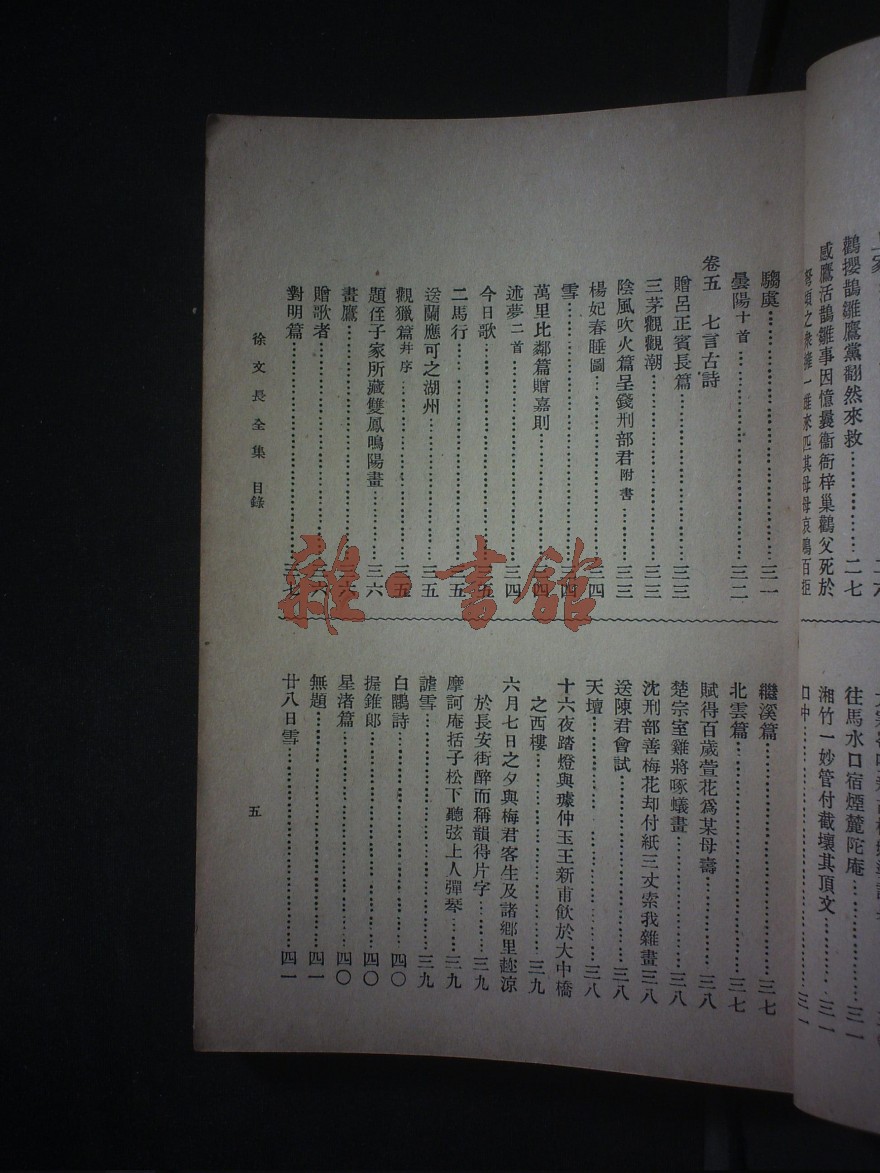 鸛攫鵲雛鷹黨翻然來救…………二七
感鷹活鵲雛事因憶曩衞衙梓巢鸛父死於
往馬水口宿煙麓陀庵…………三一
湘竹一妙管付截壞其頂文………三一
口中…………三一
騶虞…………三一
曇陽十首…………三二
卷五　七言古詩
贈呂正賓長篇…………三三
三茅觀觀潮…………三三
陰風吹火篇呈錢刑部君附書……三三
楊妃春睡圖…………三四
雪…………三四
萬里比鄰篇贈嘉則…………三四
述夢二首…………三四
今日歌…………三五
二馬行…………三五
送蘭應可之湖州…………三五
觀獵篇幷序…………三五
題侄子家所藏雙鳳鳴陽畫……三六
畫鷹…………三六
贈歌者…………三六
對明篇…………三七
繼溪篇…………三七
北雲篇…………三七
賦得百歲萱花爲某母壽………三八
楚宗室雞將啄蟻畫…………三八
沈刑部善梅花却付紙三丈索我雜畫三八
送陳君會試…………三八
天壇…………三八
十六夜踏燈與璩仲玉王新甫飲於大中橋
之西樓…………三九
六月七日之夕與梅君客生及諸鄉里趂涼
於長安街醉而稱韻得片字……三九
摩訶庵括子松下聽弦上人彈琴……三九
謔雪…………三九
白鷳詩…………四〇
握錐郎…………四〇
星渚篇…………四〇
無題…………四一
廿八日雪…………四一
徐文長全集　目錄
五
雜·書館